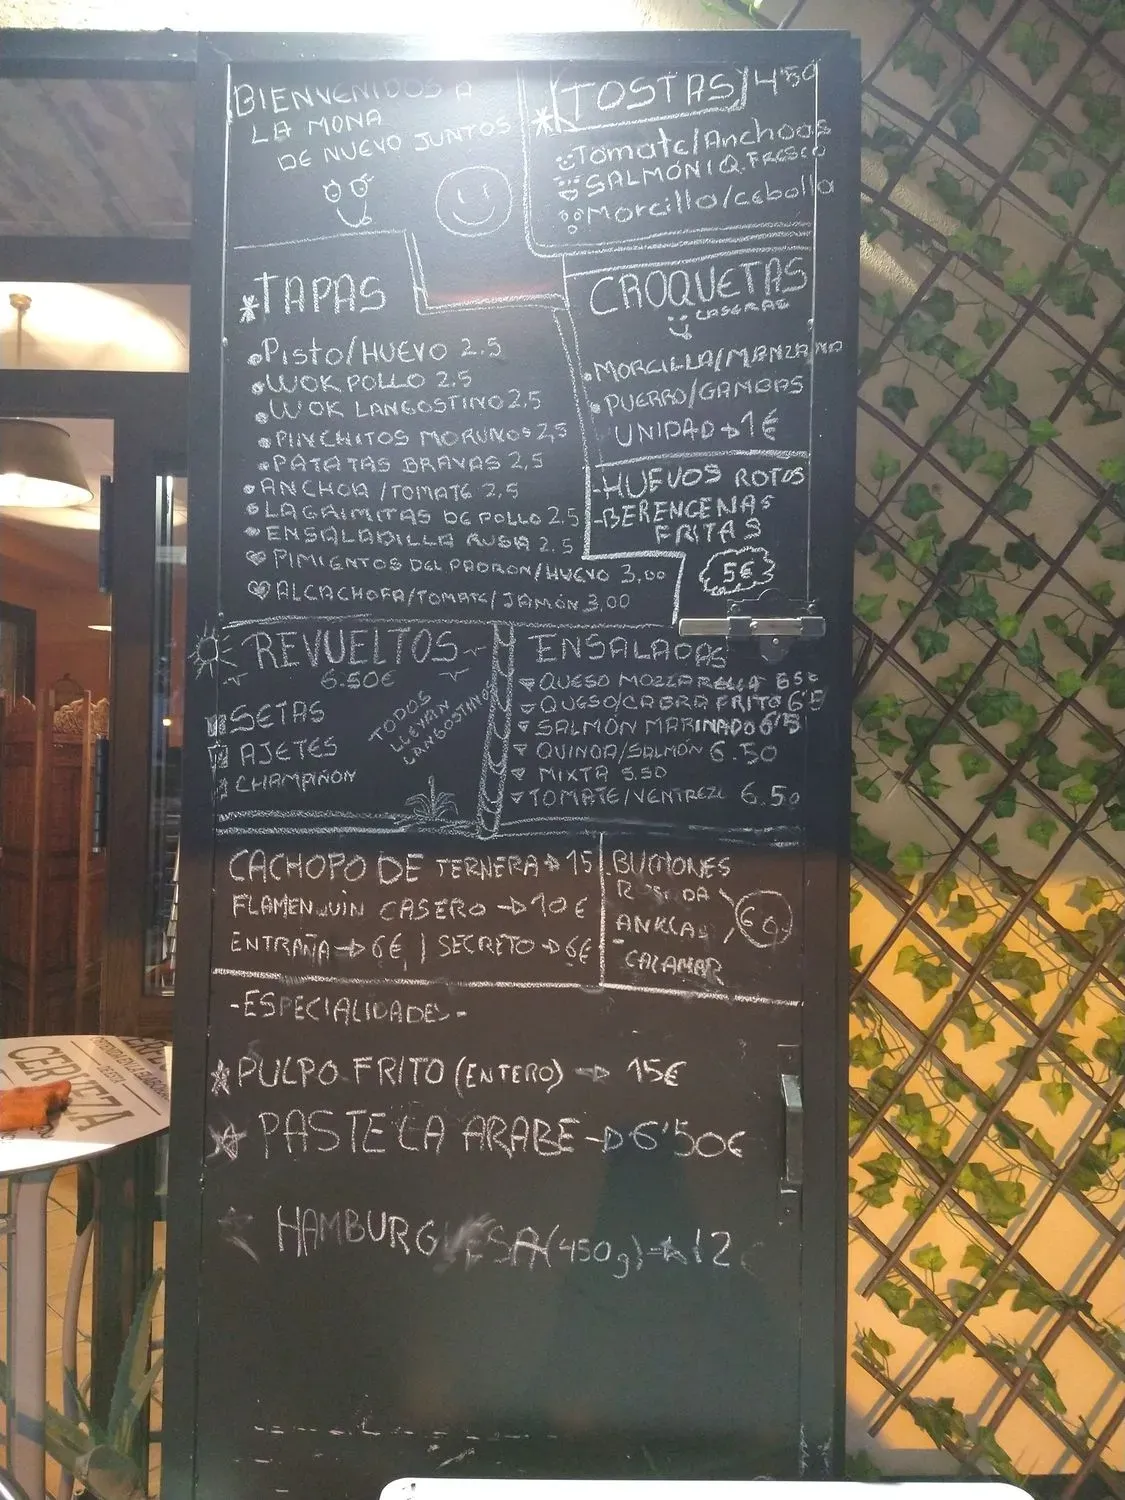 BIENVENIDOS A
LA MONA
DE NUEVO JUNTOS
TOSTAS 4'50
Tomate/Anchoas
SALMÓN/Q.FRESCO
Morcilla/cebolla
TAPAS
PISTO/HUEVO 2.5
WOK POLLO 2.5
WOK LANGOSTINO 2,5
PINCHITOS MORUNOS 2,5
PATATAS BRAVAS 2,5
ANCHOA/TOMATE 2,5
LAGRIMITAS DE POLLO 2.5
ENSALADILLA RUSA 2.5
PIMIENTOS DEL PADRON/HUEVO 3,00
ALCACHOFA/TOMATE/JAMÓN 3,00
CROQUETAS
CASERAS
MORCILLA/MANZANA
PUERRO/GAMBAS
UNIDAD → 1€
-HUEVOS ROTOS
-BERENGENAS
FRITAS
5€
REVUELTOS
6.50€
SETAS
AJETES
CHAMPIÑON
TODOS
LLEVAN
LANGOSTINOS
ENSALADAS
QUESO MOZZARELLA 6.5€
QUESO/CABRA FRITO 6'5
SALMÓN MARINADO 6'5
QUINOA/SALMÓN 6.50
MIXTA 5.50
TOMATE/VENTRE 6.50
CACHOPO DE TERNERA → 15
FLAMENQUIN CASERO → 10€
ENTRAÑA → 6€ | SECRETO → 6€
ANKLAS
-CALAMAR
-ESPECIALIDADES-
PULPO FRITO (ENTERO) → 15€
PASTELA ARABE → 6'50€
HAMBURGUESA (450g) → 12€
CERVEZA